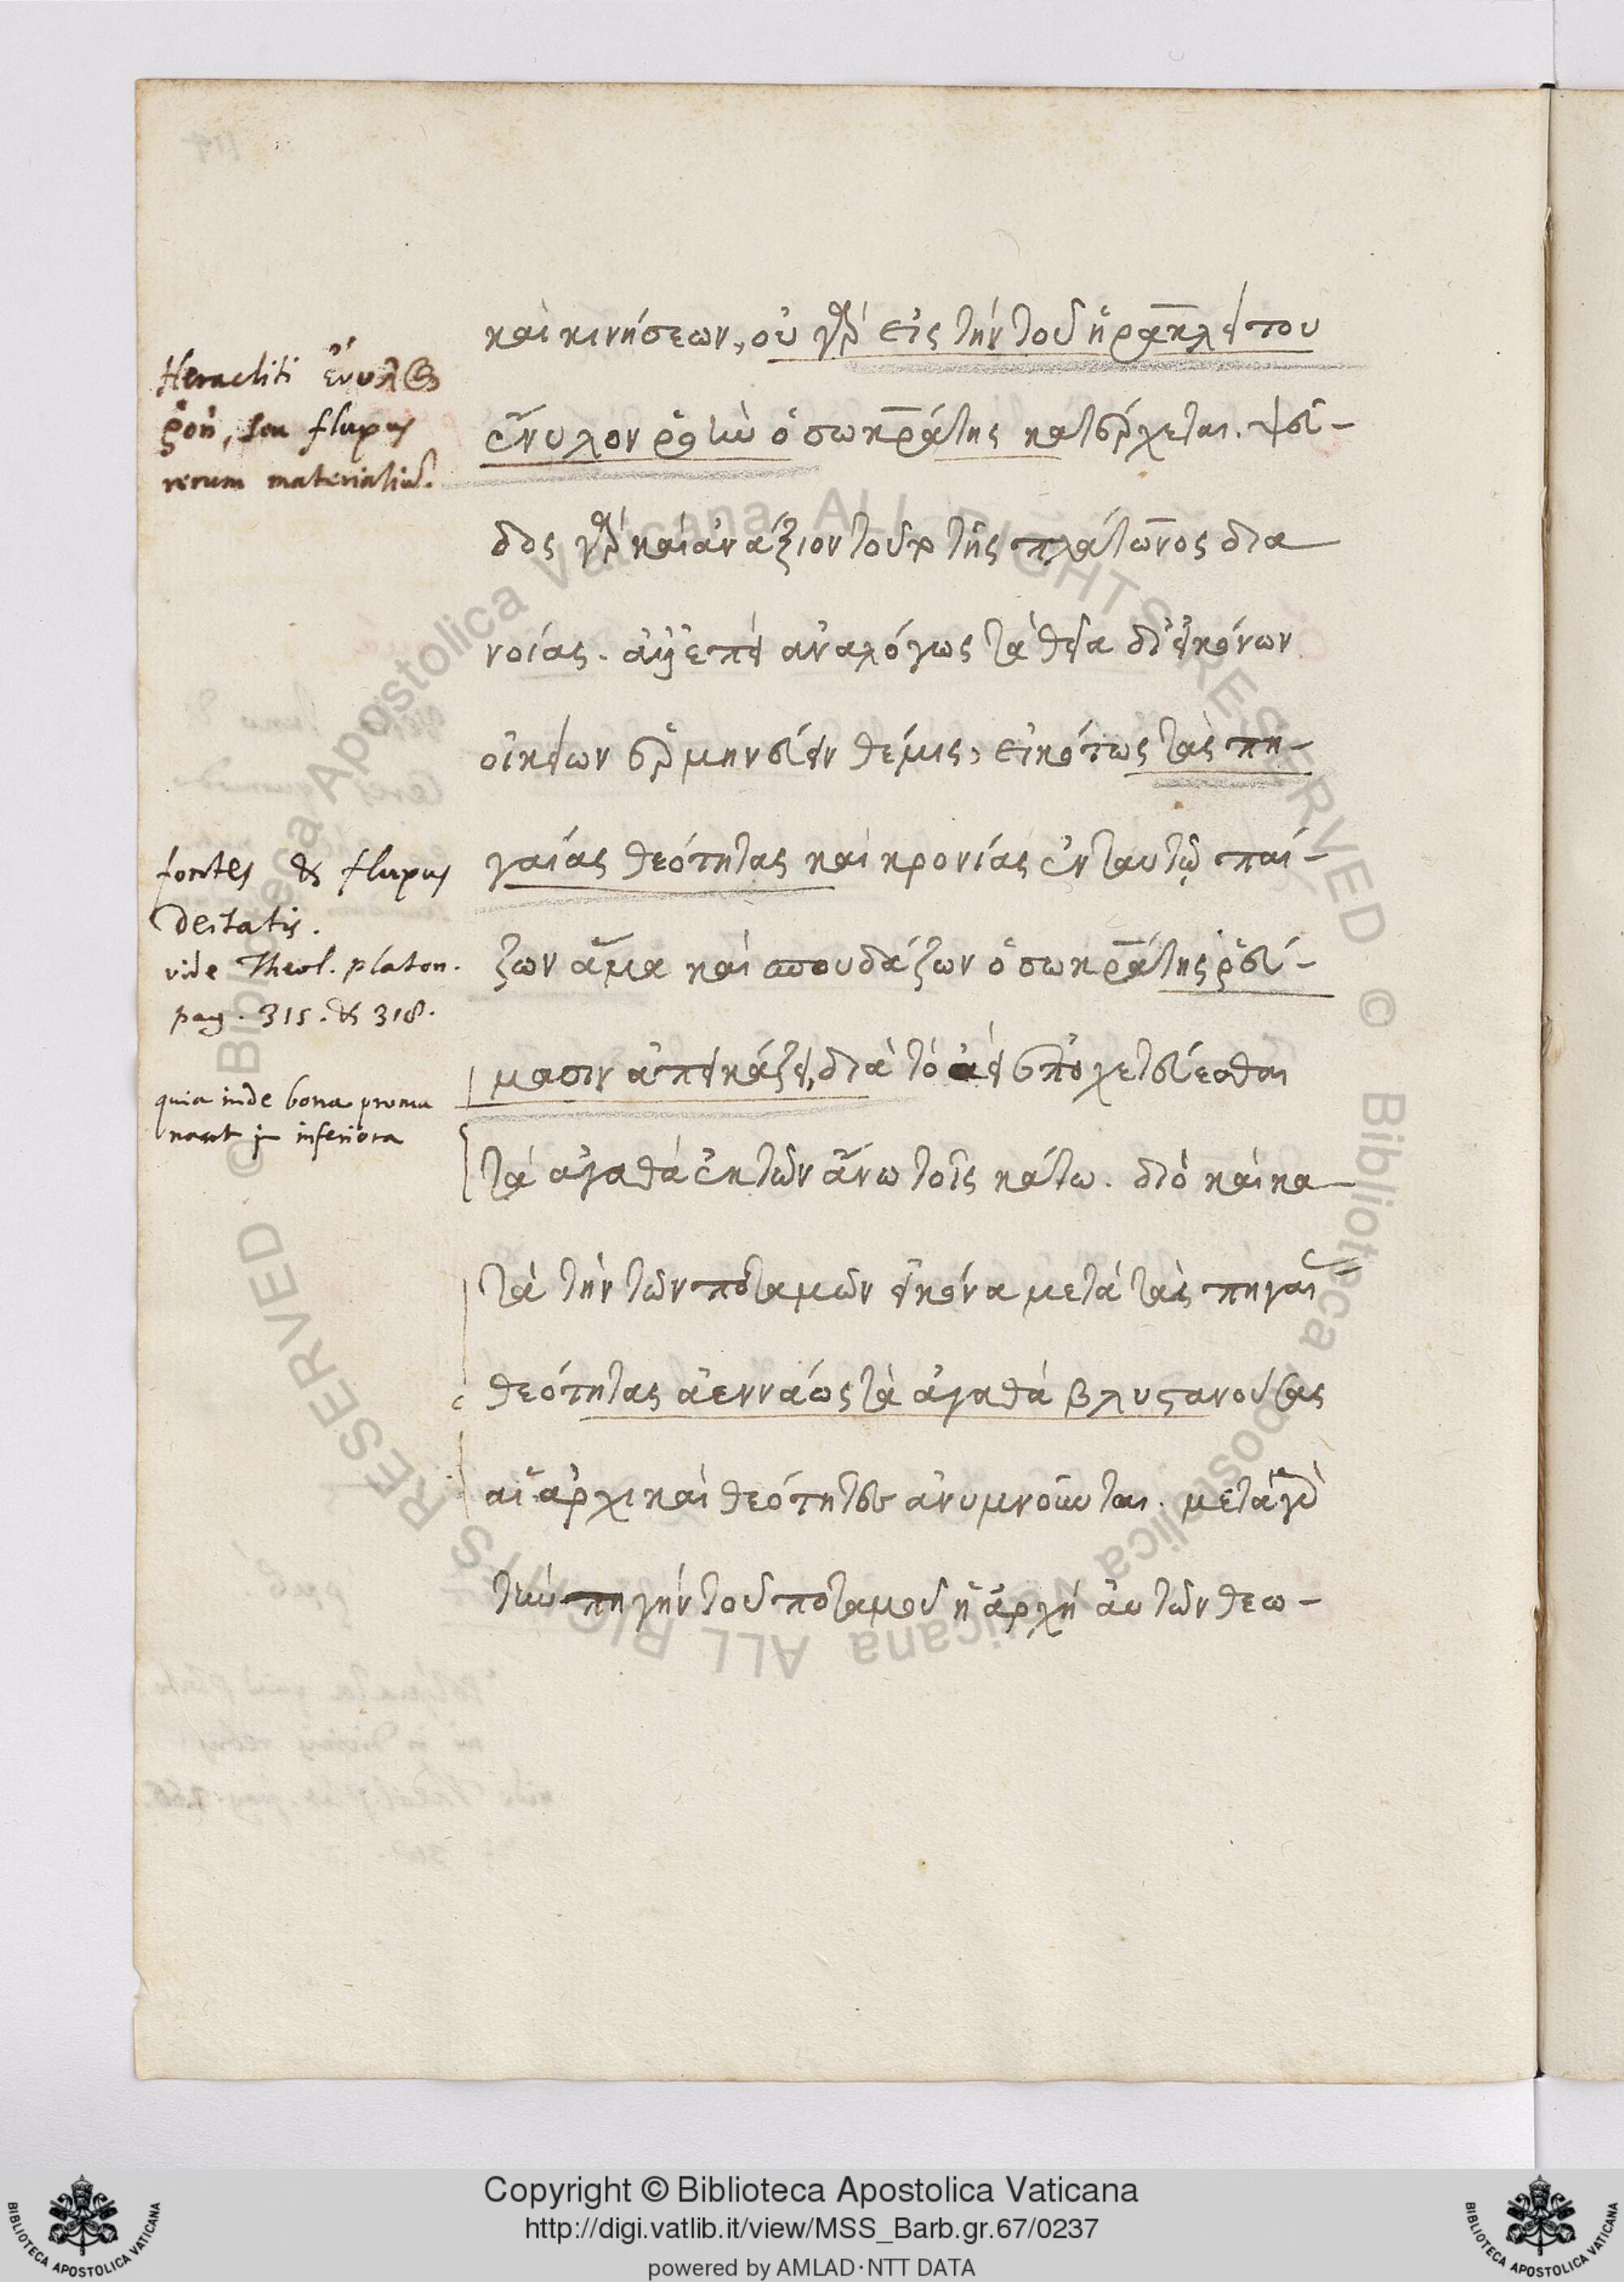 καὶ κινήσεων, οὐ γὰρ εἰς τὴν τοῦ ἡρακλείτου
ἔνυλον ῥοὴν ὁ σωκράτης κατατρέχεται. ψευ-
δὸς γὰρ καὶ ἀνάξιον τοῦτο τῆς πλάτωνος δια
νοίας. ἀλλ' ἐπεὶ ἀναλόγως τὰ θεῖα δι' εἰκόνων
οἰκείων ἑρμηνεύειν θέμις, εἰκότως τὰς πη-
γαίας θεότητας καὶ κρονίας ἐν ταυτῷ παί-
ζων ἅμα καὶ σπουδάζων ὁ σωκράτης ῥεύ-
μασιν ἀπεικάζει, διὰ τὸ ἀεὶ ἐποχετεύεσθαι
τὰ ἀγαθὰ ἐκ τῶν ἄνω τοῖς κάτω. διὸ καὶ κα-
τὰ τὴν τῶν ποταμῶν εἰκόνα μετὰ τὰς πηγαί
θεότητας ἀεννάως τὰ ἀγαθὰ βλυστανούσας
αἱ ἀρχικαὶ θεότητες ἀνυμνοῦνται. μετὰ γὰρ
τὴν πηγὴν τοῦ ποταμοῦ ἡ ἀρχὴ αὐτῶν θεω-
Heracliti ἔνυλος
ῥοὴ, seu fluxus
rerum materialiū.
fontes & fluxus
deitatis.
vide Theol. platon.
pag. 315. & 318.
quia inde bona proma
nant in inferiora
Copyright © Biblioteca Apostolica Vaticana
http://digi.vatlib.it/view/MSS_Barb.gr.67/0237
powered by AMLAD·NTT DATA
BIBLIOTECA APOSTOLICA VATICANA
BIBLIOTECA APOSTOLICA VATICANA
© Biblioteca Apostolica Vaticana ALL RIGHTS RESERVED
© Biblioteca Apostolica Vaticana ALL RIGHTS RESERVED